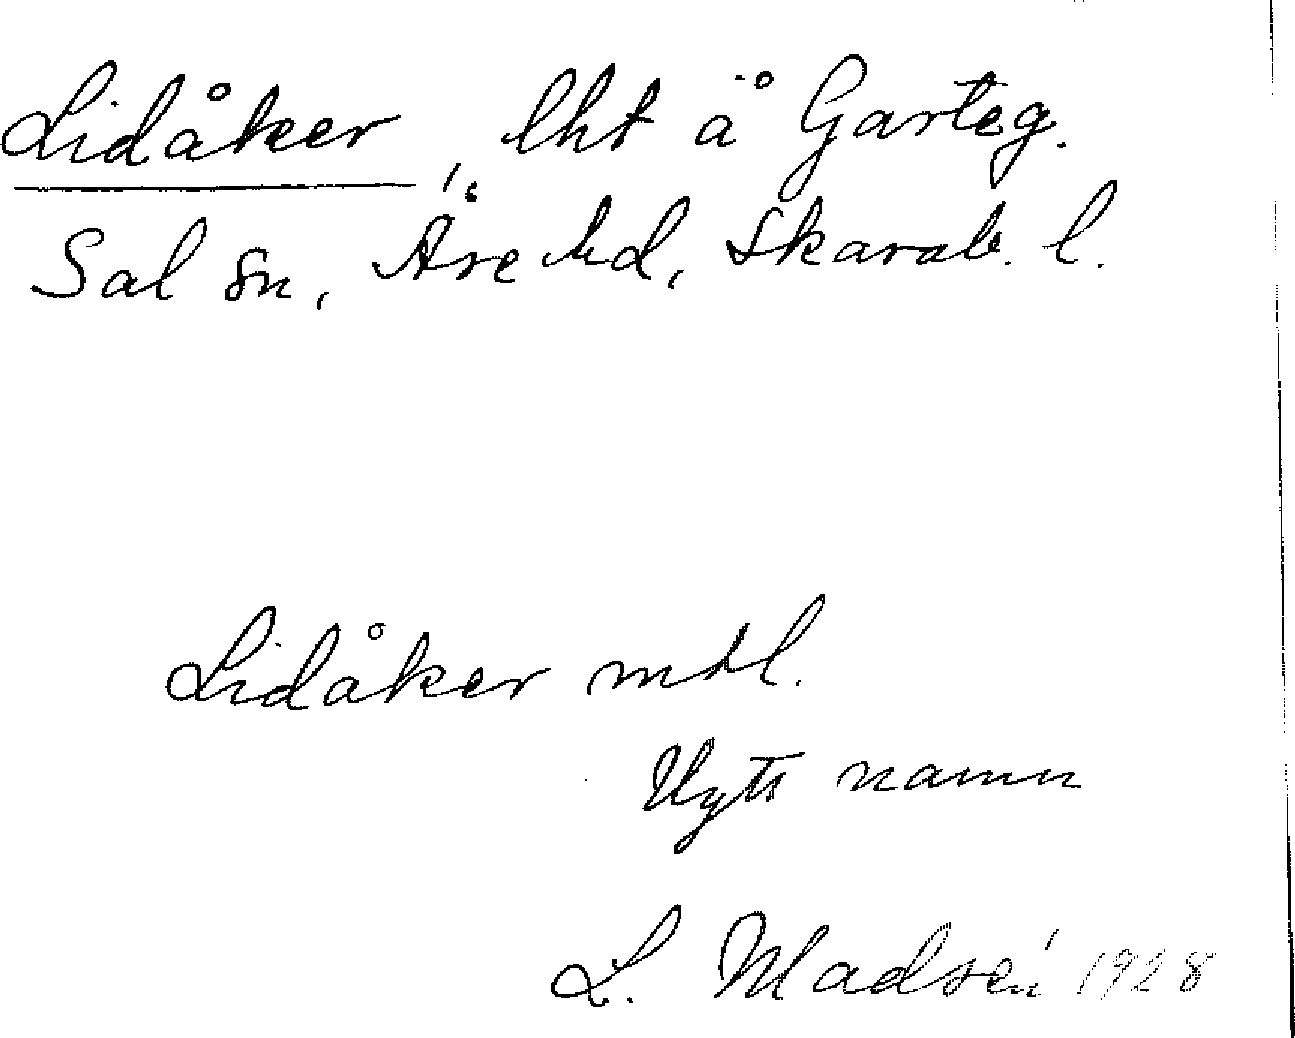 Lidåker, lht å Garteg.
Sal sn, Åse hd, Skarab. l.
Lidåker mtl.
Nytt namn
L. Madsén 1928